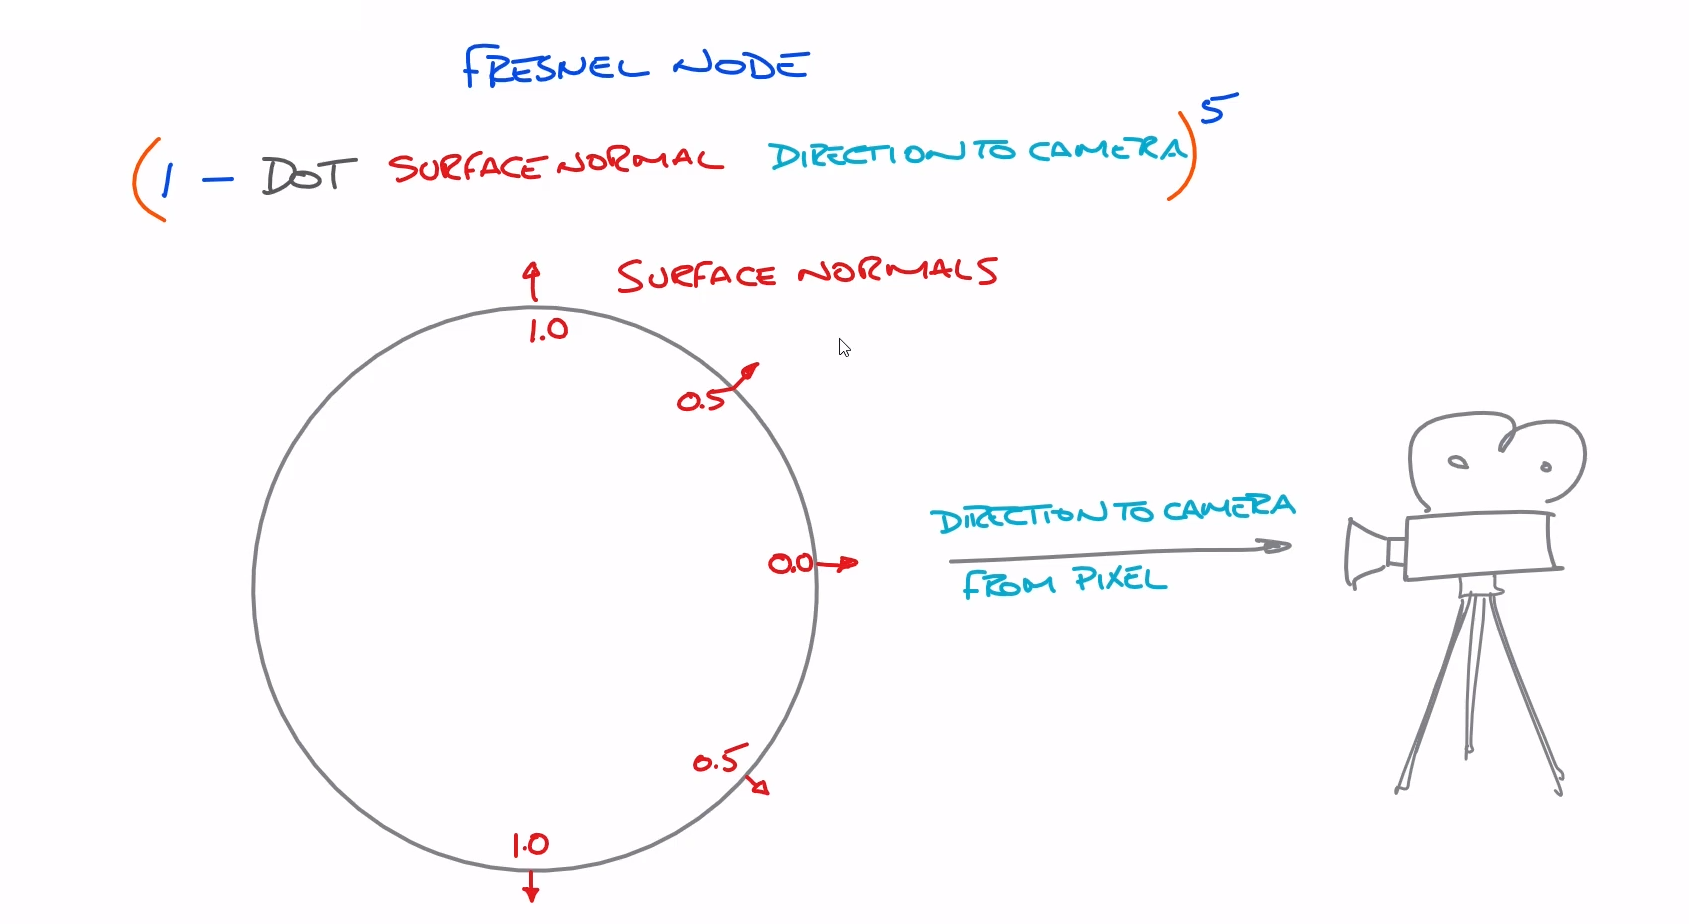 FRESNEL NODE
(1 - DOT SURFACE NORMAL DIRECTION TO CAMERA)^5
SURFACE NORMALS
1.0
0.5
DIRECTION TO CAMERA
0.0
FROM PIXEL
0.5
1.0